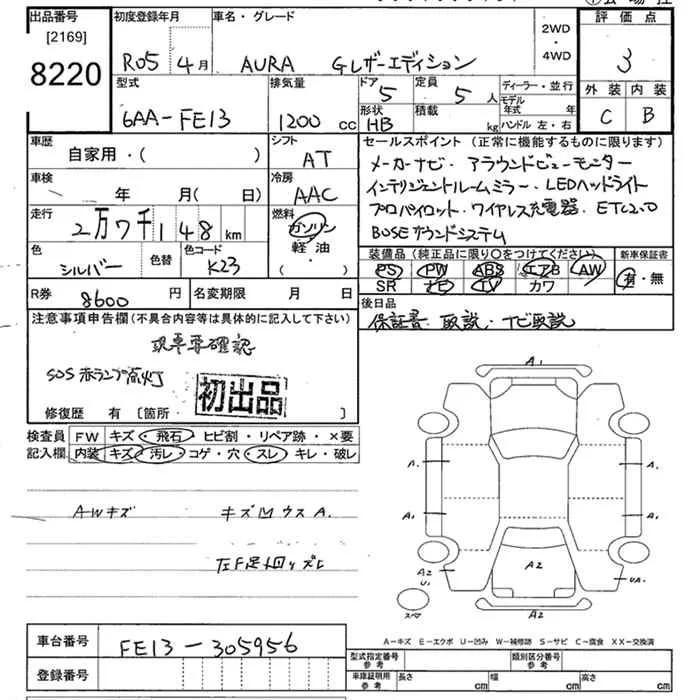 出品番号 初度登録年月 車名・グレード 評価点
[2169]
8220 R05年4月 AURA Gレザーエディション 2WD・4WD 3
型式 排気量 ドア 定員 ディーラー・並行 外装 内装
6AA-FE13 1200 cc 5 5人 モデル年式 年 C B
形状 積載 ハンドル 左・右
HB kg
車歴 シフト セールスポイント (正常に機能するものに限ります)
自家用・( ) AT メーカーナビ・アラウンドビューモニター
車検 冷房 インテリジェントルームミラー・LEDヘッドライト
年 月( 日) AAC プロパイロット・ワイヤレス充電器・ETC2.0
走行 燃料 BOSEサウンドシステム
2万7千148km ガソリン
軽油
・( )
色 色替 色コード 装備品 (純正品に限り○をつけてください) 新車保証書
シルバー K23 PS PW ABS エアB AW 有・無
SR ナビ TV カワ
R券 8600円 名変期限 月 日 後日品
保証書・取説・ナビ取説
注意事項申告欄(不具合内容等は具体的に記入して下さい)
SOS赤ランプ点灯
初出品
修復歴 有 [箇所 ]
検査員 FW キズ・飛石・ヒビ割・リペア跡・×要
記入欄 内装 キズ・汚レ・コゲ・穴・スレ・キレ・破レ
AWキズ
A1
A1 A1
A1 A1
A2 U1 A2 UA1
スペア A2
A-キズ E-エクボ U-凹み W-補修跡 S-サビ C-腐食 XX-交換済
車台番号 FE13-305956
登録番号
型式指定番号 参考 類別区分番号 参考
車庫証明用 参考 長さ cm 幅 cm 高さ cm